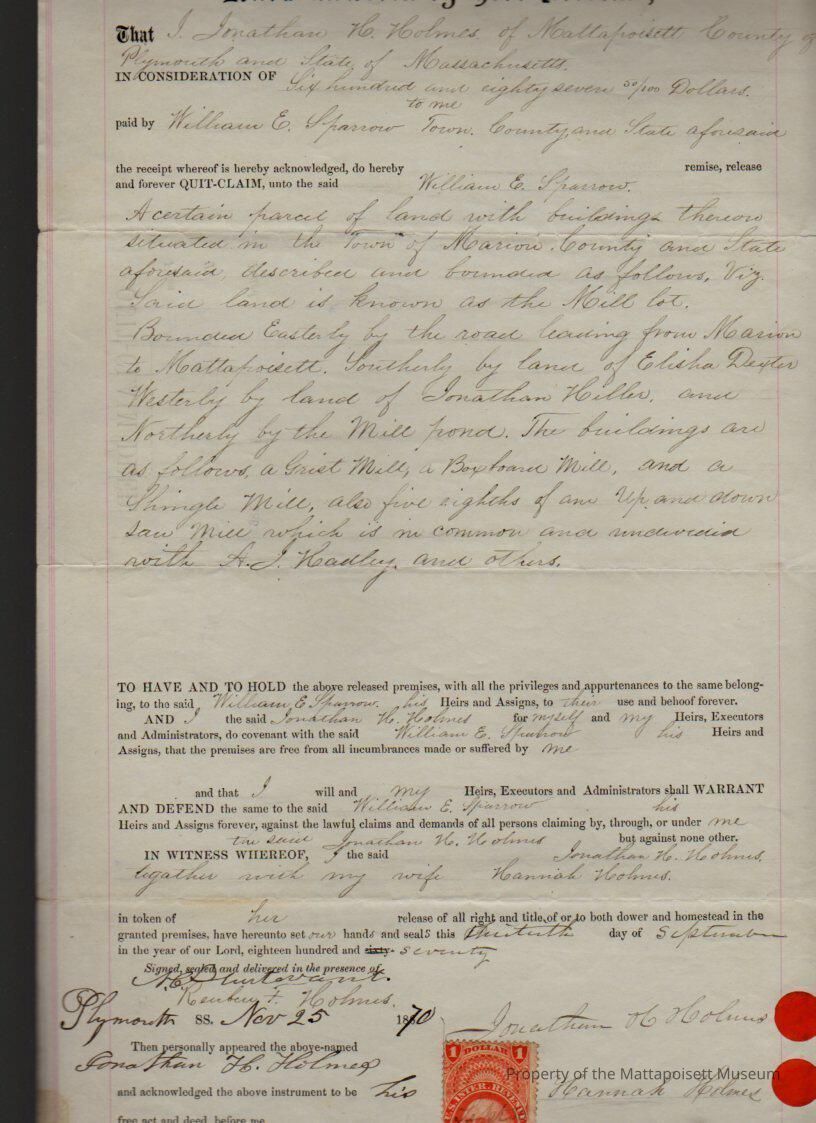 That I, Jonathan H. Holmes, of Mattapoisett County of
Plymouth and State of Massachusetts.
IN CONSIDERATION OF Six hundred and eighty seven 50/100 Dollars.
to me
paid by William E. Sparrow Town, County, and State aforesaid
the receipt whereof is hereby acknowledged, do hereby remise, release
and forever QUIT-CLAIM, unto the said William E. Sparrow.
A certain parcel of land with buildings thereon
situated in the Town of Marion. County and State
aforesaid, described and bounded as follows, Viz.
Said land is known as the Mill lot.
Bounded Easterly by the road leading from Marion
to Mattapoisett. Southerly by land of Elisha Dexter
Westerly by land of Jonathan Hiller, and
Northerly by the Mill pond. The buildings are
as follows, a Grist Mill, a Boxboard Mill, and a
Shingle Mill, also five eighths of an Up and down
Saw Mill which is in common and undivided
with A. J. Hadley, and others.
TO HAVE AND TO HOLD the above released premises, with all the privileges and appurtenances to the same belong-
ing, to the said William E Sparrow. his Heirs and Assigns, to their use and behoof forever.
AND I the said Jonathan H. Holmes for myself and my Heirs, Executors
and Administrators, do covenant with the said William E. Sparrow his Heirs and
Assigns, that the premises are free from all incumbrances made or suffered by me
and that I will and my Heirs, Executors and Administrators shall WARRANT
AND DEFEND the same to the said William E. Sparrow his
Heirs and Assigns forever, against the lawful claims and demands of all persons claiming by, through, or under me
the said Jonathan H. Holmes but against none other.
IN WITNESS WHEREOF, I the said Jonathan H. Holmes.
together with my wife Hannah Holmes.
in token of her release of all right and title of or to both dower and homestead in the
granted premises, have hereunto set our hands and seals this thirtieth day of September
in the year of our Lord, eighteen hundred and sixty- seventy
Signed, sealed and delivered in the presence of
Holmes.
Plymouth SS. Nov 25 1870 Jonathan H Holmes
Then personally appeared the above-named
Jonathan H. Holmes
1 DOLLAR 1
Property of the Mattapoisett Museum
and acknowledged the above instrument to be his Hannah Holmes
U.S. INTER. REVENUE
free act and deed, before me